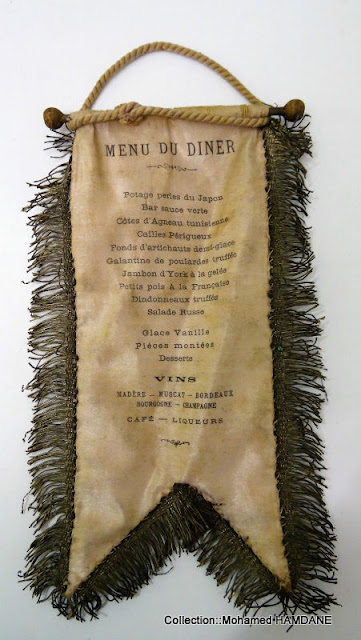 MENU DU DINER
Potage perles du Japon
Bar sauce verte
Côtes d'Agneau tunisienne
Cailles Périgueux
Fonds d'artichauts demi-glace
Galantine de poulardes truffée
Jambon d'York à la gelée
Petits pois à la Française
Dindonneaux truffés
Salade Russe
Glace Vanille
Pièces montées
Desserts
VINS
MADÈRE — MUSCAT — BORDEAUX
BOURGOGNE — CHAMPAGNE
CAFÉ — LIQUEURS
Collection::Mohamed HAMDANE